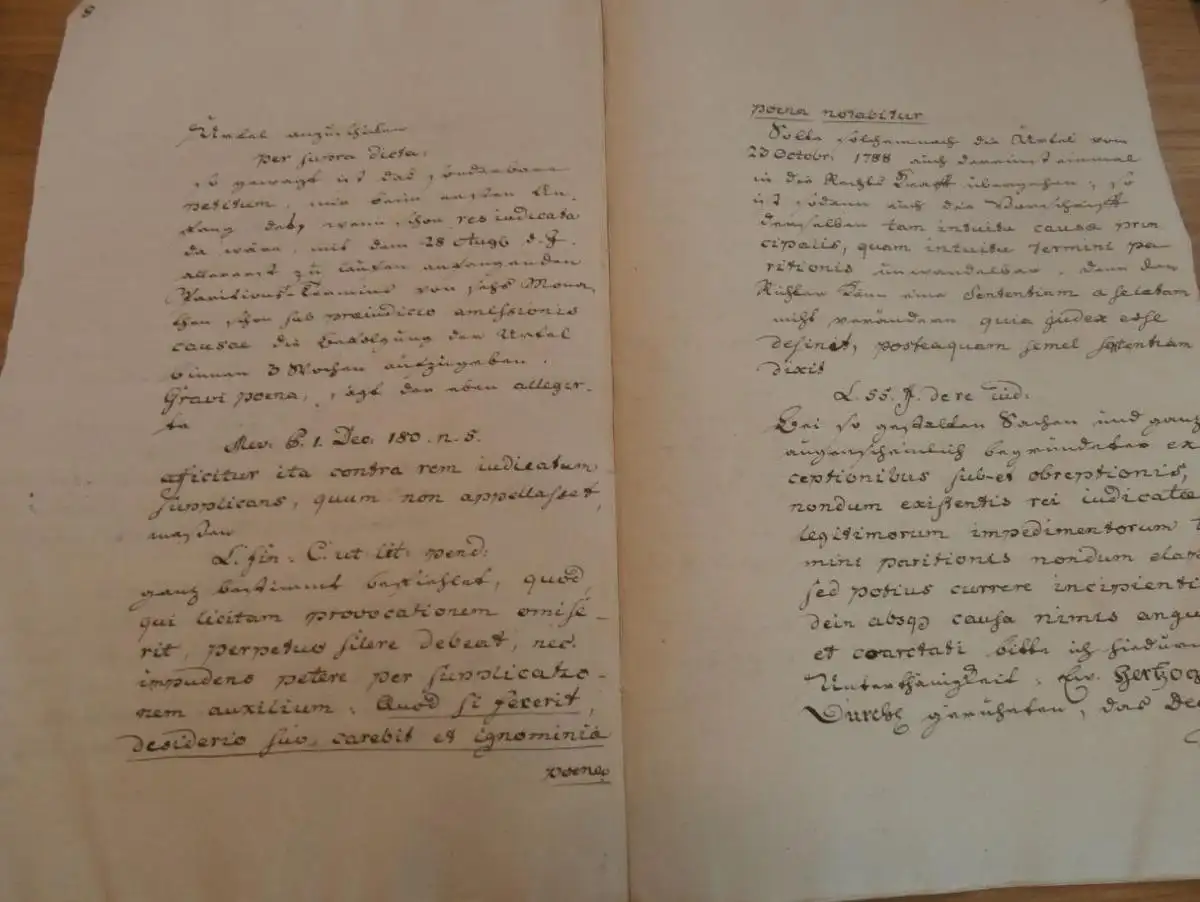 8
Urtel anzusehen
per supra dicta.
so gewagt ist das sonderbare
petitum, mir beim ersten An-
fang, daß, wenn schon res iudicata
da wäre, mit dem 28 Aug. d. J.
allererst zu laufen anfangenden
Paritions-Termine von sechs Mona
then schon sub praeiudicio amissionis
causae die Befolgung der Urtel
binnen 3 Wochen aufzugeben.
Gravi poena, sagt der eben allegir-
te
Mev. P. 1. Dec. 180. n. 5.
aficitur ita contra rem iudicatum
supplicans, quum non appellasset,
massen
L. fin. C. ut lit. pend.
ganz bestimmt befiehlet, quod
qui licitam provocationem omise-
rit, perpetuo silere debeat, nec
impudens petere per supplicatio-
nem auxilium. Quod si fexerit,
desiderio suo, carebit et ignominiã
poenae
poena notabitur
Solte solchemnach die Urtel vom
23 Octobr. 1788 auch dereinst einmal
in die Rechts Kraft übergehen, so
ist sodenn auch die Vorschrift
derselben tam intuitu causae prin
cipalis, quam intuitu termini pa-
ritionis unwandelbar, denn der
Richter kann eine Sententiam a se latam
nicht verändern quia judex esse
desinit, posteaquam semel sententiam
dixit
L. 55. ff. de re iud.
Bei so gestalten Sachen und ganz
augenscheinlich begründeter ex
ceptionibus sub- et obreptionis,
nondum existentis rei iudicatae
legitimorum impedimentorum
mini paritionis nondum elap
sed potius currere incipienti
dein absq causa nimis angu
et coarctati bitte ich hiedurch
Unterthänigkeit, Ew. Hertzog
Durchl. geruheten, das De